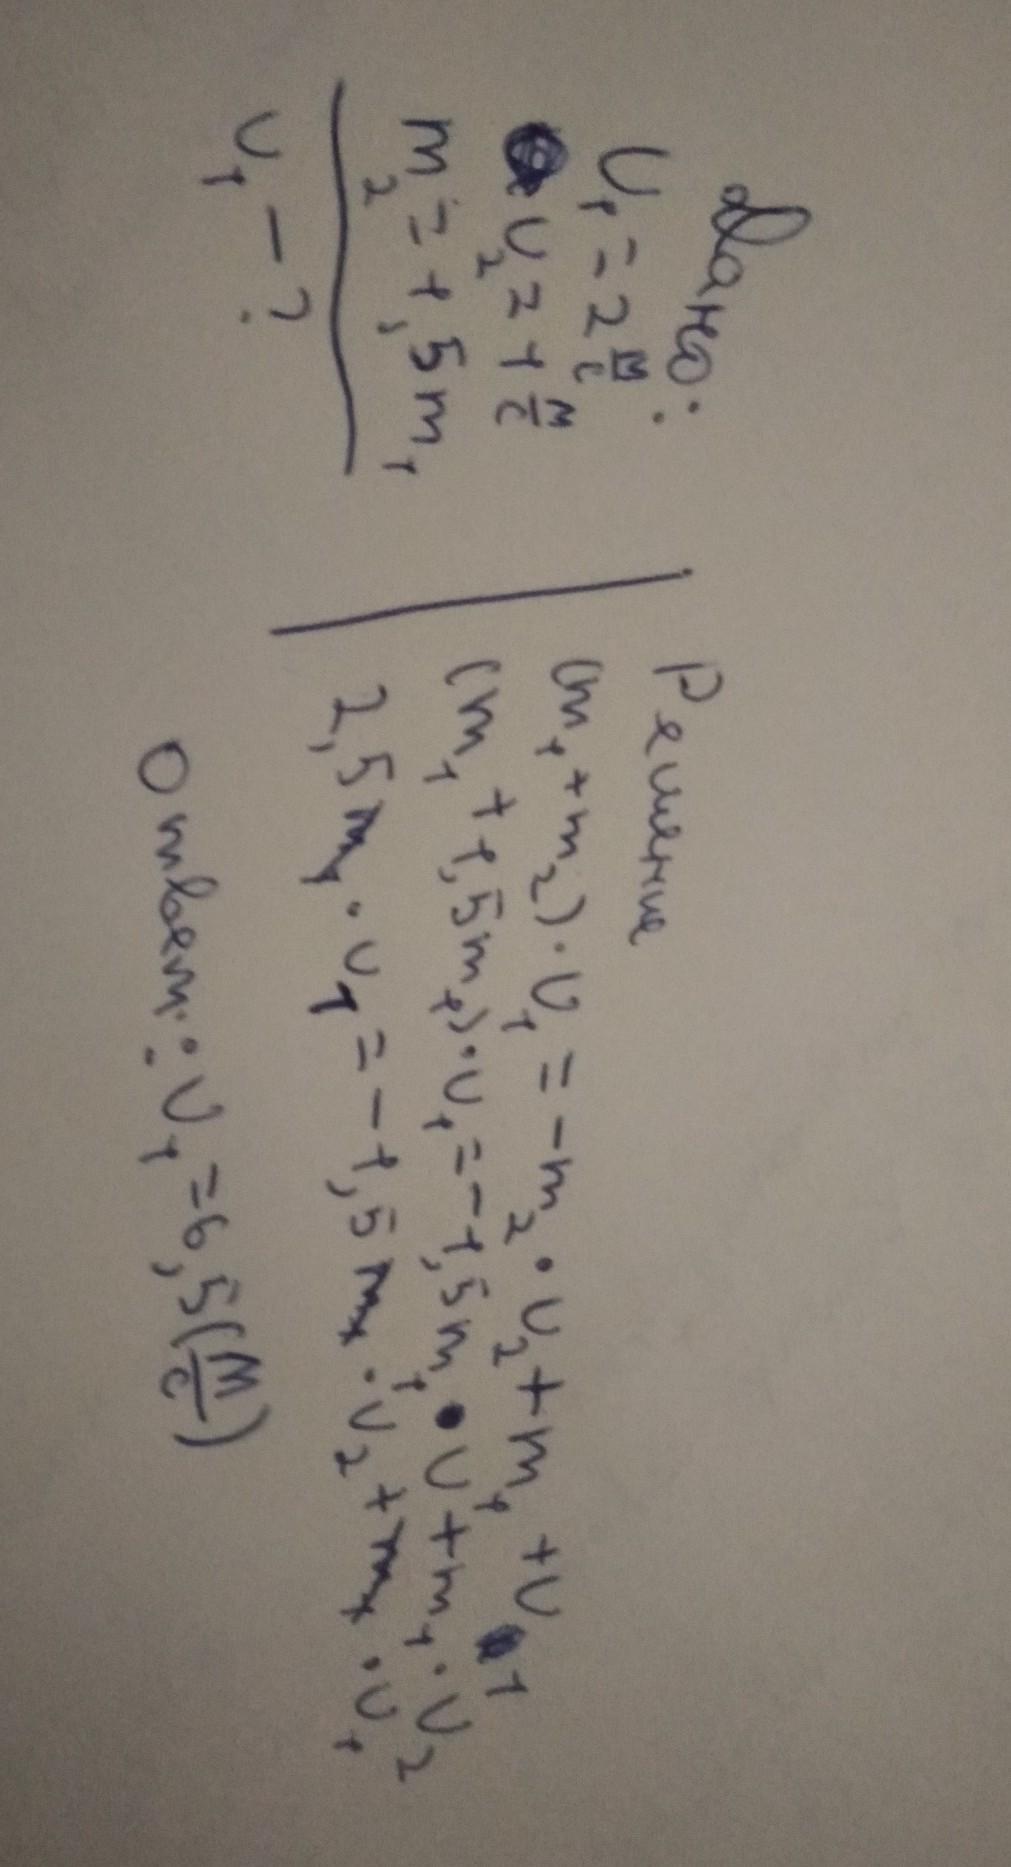 Дано:
υ₁ = 2 м/с
υ₂ = 1 м/с
m₂ = 1,5 m₁
υ₁ - ?
Решение
(m₁ + m₂) · υ₁ = -m₂ · υ₂ + m₁ + υ₁
(m₁ + 1,5 m₁) · υ₁ = -1,5 m₁ · υ + m₁ · υ₂
2,5 m₁ · υ₁ = -1,5 m₁ · υ₂ + m₁ · υ₁
Ответ: υ₁ = 6,5 (м/с)